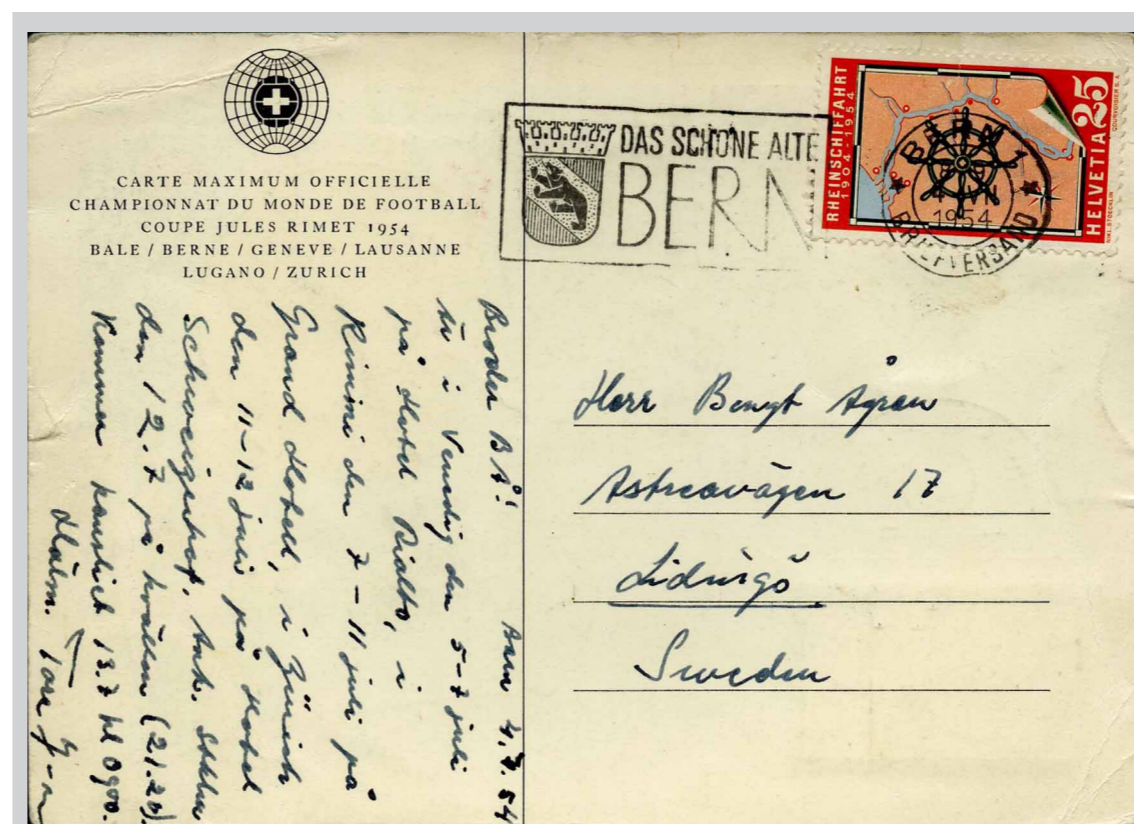 CARTE MAXIMUM OFFICIELLE
CHAMPIONNAT DU MONDE DE FOOTBALL
COUPE JULES RIMET 1954
BALE / BERNE / GENEVE / LAUSANNE
LUGANO / ZURICH
DAS SCHÖNE ALTE
BERN
RHEINSCHIFFAHRT
1904 - 1954
HELVETIA 25
COURVOISIER S.A.
NIKL. STOECKLIN
BERN 1
1954
BRIEFVERSAND
4.7.54
Broder BÅ!
är i Venedig den 5-7 juli
på Hotel Rialto, i
Rimini den 7-11 juli på
Grand Hotell, i Zürich
den 11-12 juli på Hotel
Schweizerhof. Ank. Sthlm
den 12.7 på kvällen (21.20).
Kommer kanslich 13.7 kl 0900.
Hälsn. Tore
Herr Bengt Ågren
Astreavägen 17
Lidingö
Sweden